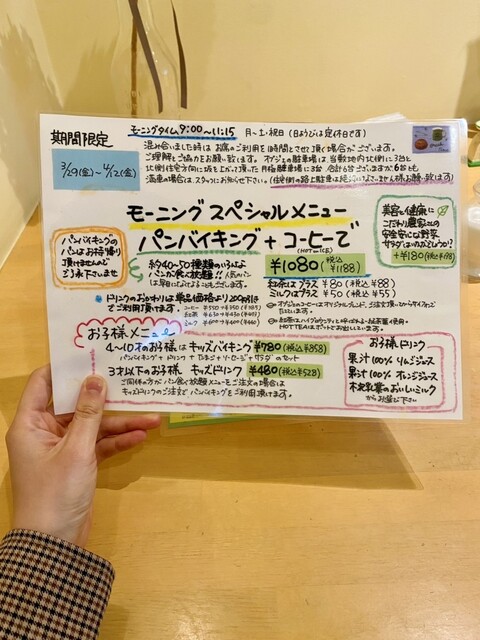 期間限定
3/29(金)~4/12(金)
モーニングタイム 9:00~11:15 月~土・祝日 (日ようびは定休日です)
混み合いました時は お席のご利用を1時間とさせて頂く場合がございます。
ご理解とご協力をお願い致します。
満車の場合は、スタッフにお知らせ下さい。
モーニングスペシャルメニュー
パンバイキング+コーヒーで
(HOT or ICE)
¥1080(税込¥1188)
パンバイキングの
パンはお持ち帰り
頂けませんので
ご了承下さいませ
美容と健康に
こだわり農家さんの
安全安心な野菜
サラダはいかがでしょうか?
+¥180(税込¥198)
約40~50種類のパンが食べ放題!!
紅茶はプラス ¥80(税込¥88)
ミルクはプラス ¥50(税込¥55)
ドリンクのおかわりは単品価格より200円引き
でご利用頂けます。
お子様メニュー
4~10才のお子様は キッズバイキング ¥780(税込¥858)
パンバイキング+ドリンク+たまご+ソーセージ+サラダのセット
3才以下のお子様 キッズドリンク ¥480(税込¥528)
ご同伴の方がパン食べ放題メニューをご注文の場合は
キッズドリンクのご注文でパンバイキングをご利用頂けます。
お子様ドリンク
果汁100% りんごジュース
果汁100% オレンジジュース
木次乳業のおいしいミルク
からお選び下さい